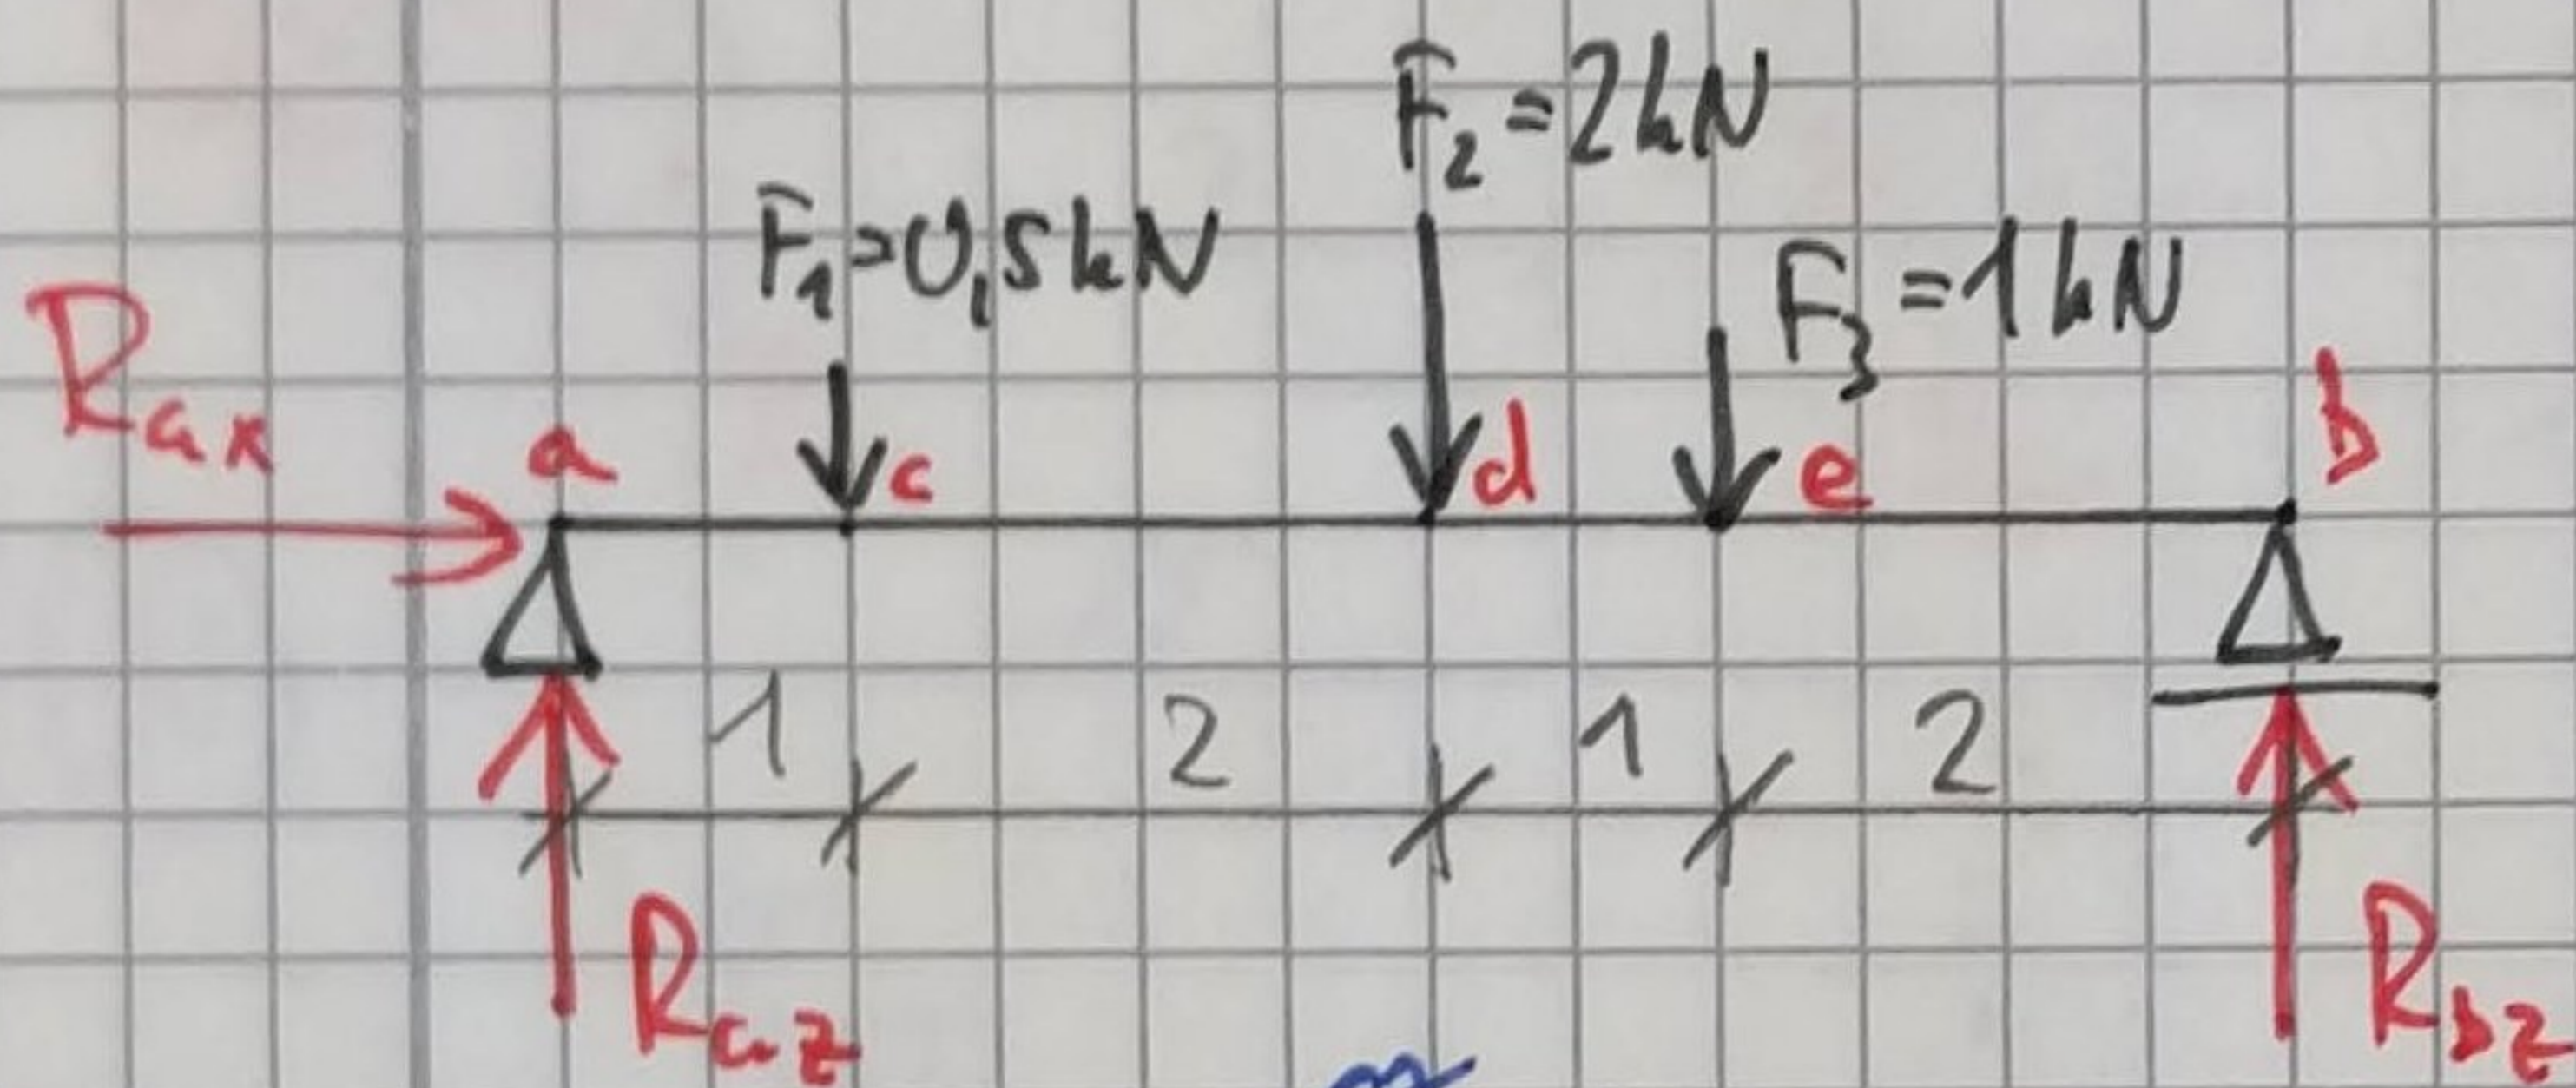 F₂=2kN
F₁=0,5kN
F₃=1kN
Rax
a
c
d
e
b
1 2 1 2
Raz
Rbz